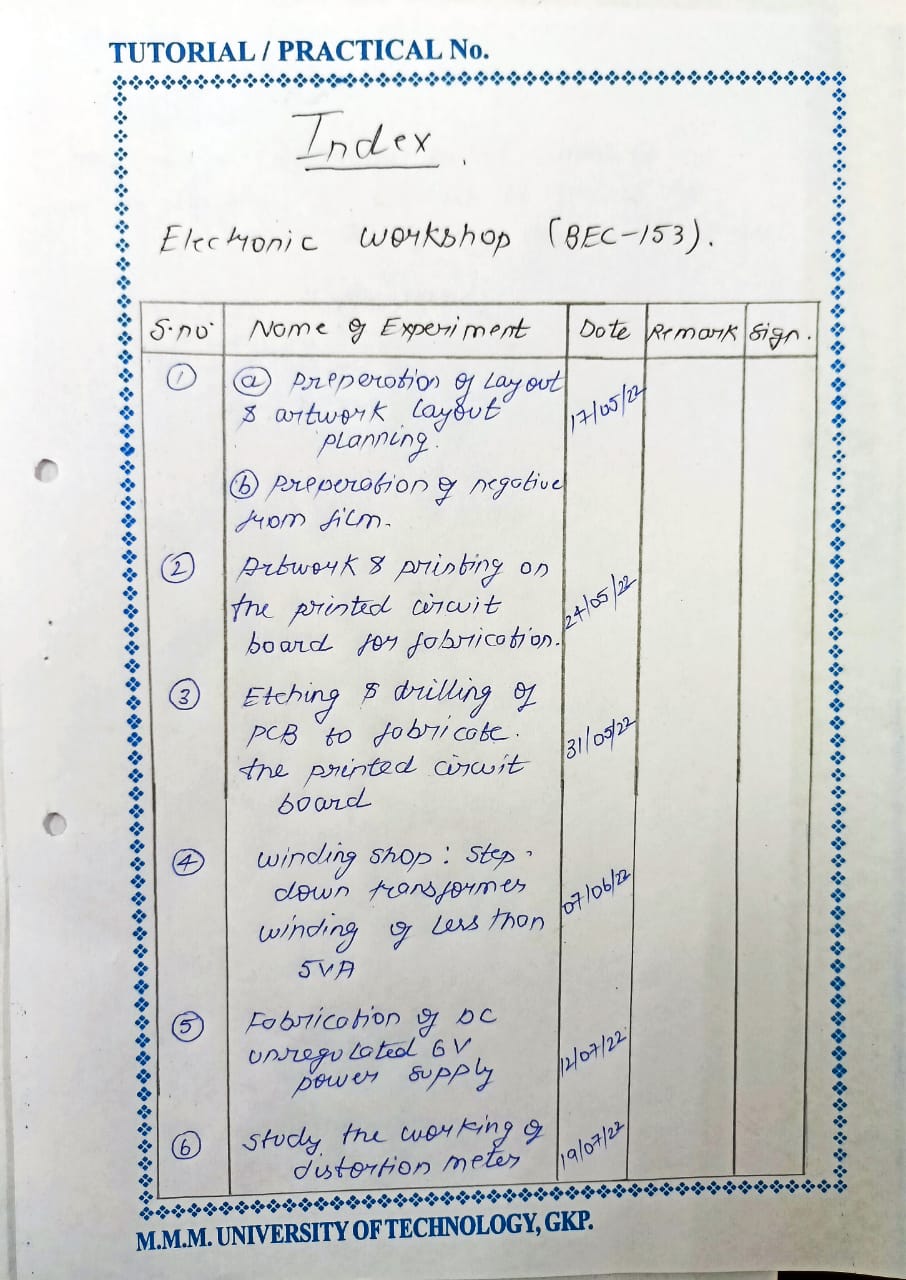 TUTORIAL / PRACTICAL No.
Index.
Electronic workshop (BEC-153).
S.no Name of Experiment Date Remark Sign.
① ⓐ Preperation of Layout
& artwork layout 17/05/22
planning.
ⓑ Preperation of negative
from film.
② Artwork & printing on
the printed circuit 24/05/22
board for fabrication.
③ Etching & drilling of
PCB to fabricate. 31/05/22
the printed circuit
board
④ winding shop: Step-
down transformer 07/06/22
winding of less than
5VA
⑤ Fabrication of DC
unregulated 6V 12/07/22
power supply
⑥ study the working of
distortion meter 19/07/22
M.M.M. UNIVERSITY OF TECHNOLOGY, GKP.